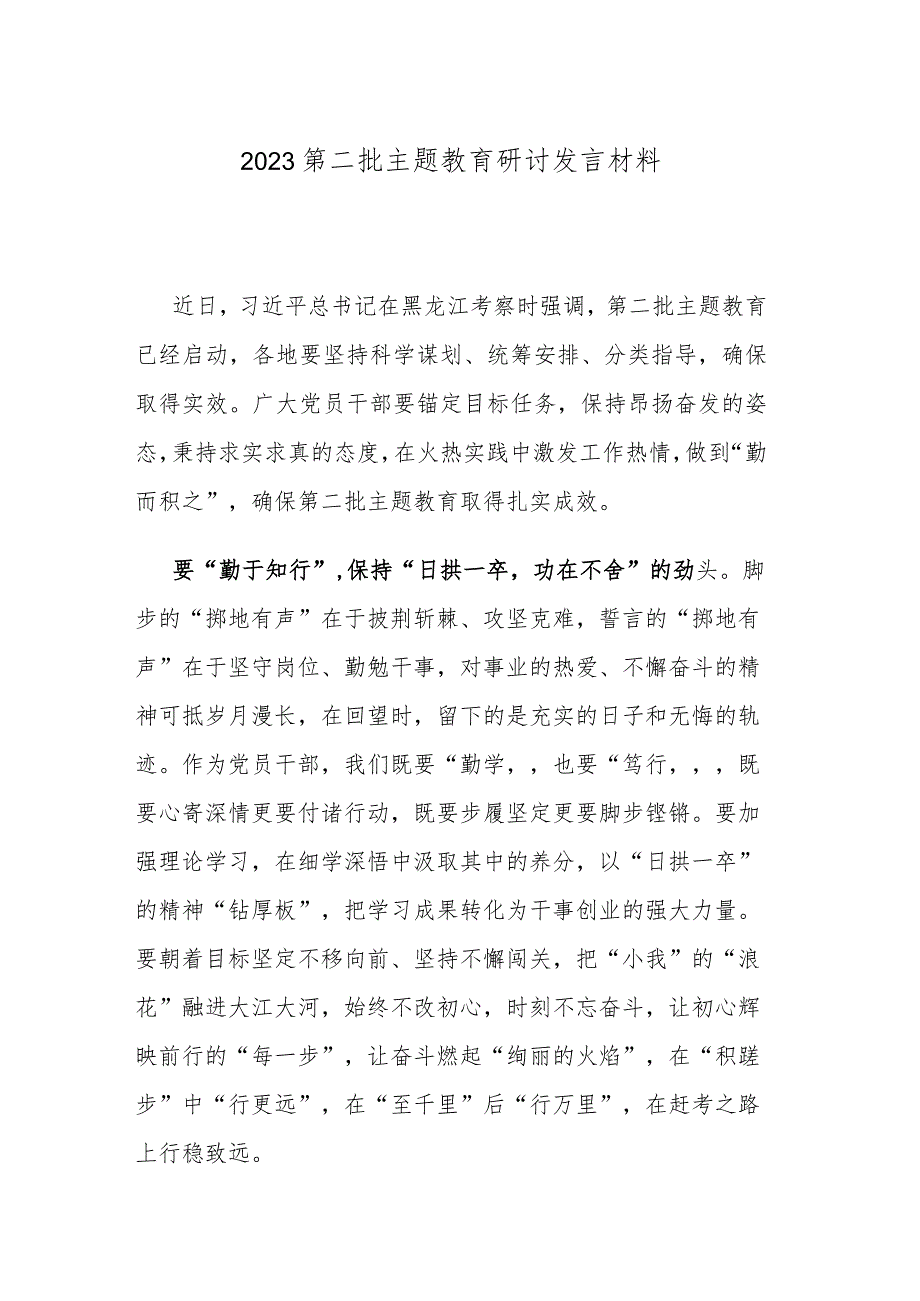 2023第二批主题教育研讨发言材料
近日，习近平总书记在黑龙江考察时强调，第二批主题教育
已经启动，各地要坚持科学谋划、统筹安排、分类指导，确保
取得实效。广大党员干部要锚定目标任务，保持昂扬奋发的姿
态，秉持求实求真的态度，在火热实践中激发工作热情，做到“勤
而积之”，确保第二批主题教育取得扎实成效。
要“勤于知行”,保持“日拱一卒，功在不舍”的劲头。脚
步的“掷地有声”在于披荆斩棘、攻坚克难，誓言的“掷地有
声”在于坚守岗位、勤勉干事，对事业的热爱、不懈奋斗的精
神可抵岁月漫长，在回望时，留下的是充实的日子和无悔的轨
迹。作为党员干部，我们既要“勤学，，也要“笃行，，，既
要心寄深情更要付诸行动，既要步履坚定更要脚步铿锵。要加
强理论学习，在细学深悟中汲取其中的养分，以“日拱一卒”
的精神“钻厚板”，把学习成果转化为干事创业的强大力量。
要朝着目标坚定不移向前、坚持不懈闯关，把“小我”的“浪
花”融进大江大河，始终不改初心，时刻不忘奋斗，让初心辉
映前行的“每一步”，让奋斗燃起“绚丽的火焰”，在“积蹉
步”中“行更远”，在“至千里”后“行万里”，在赶考之路
上行稳致远。